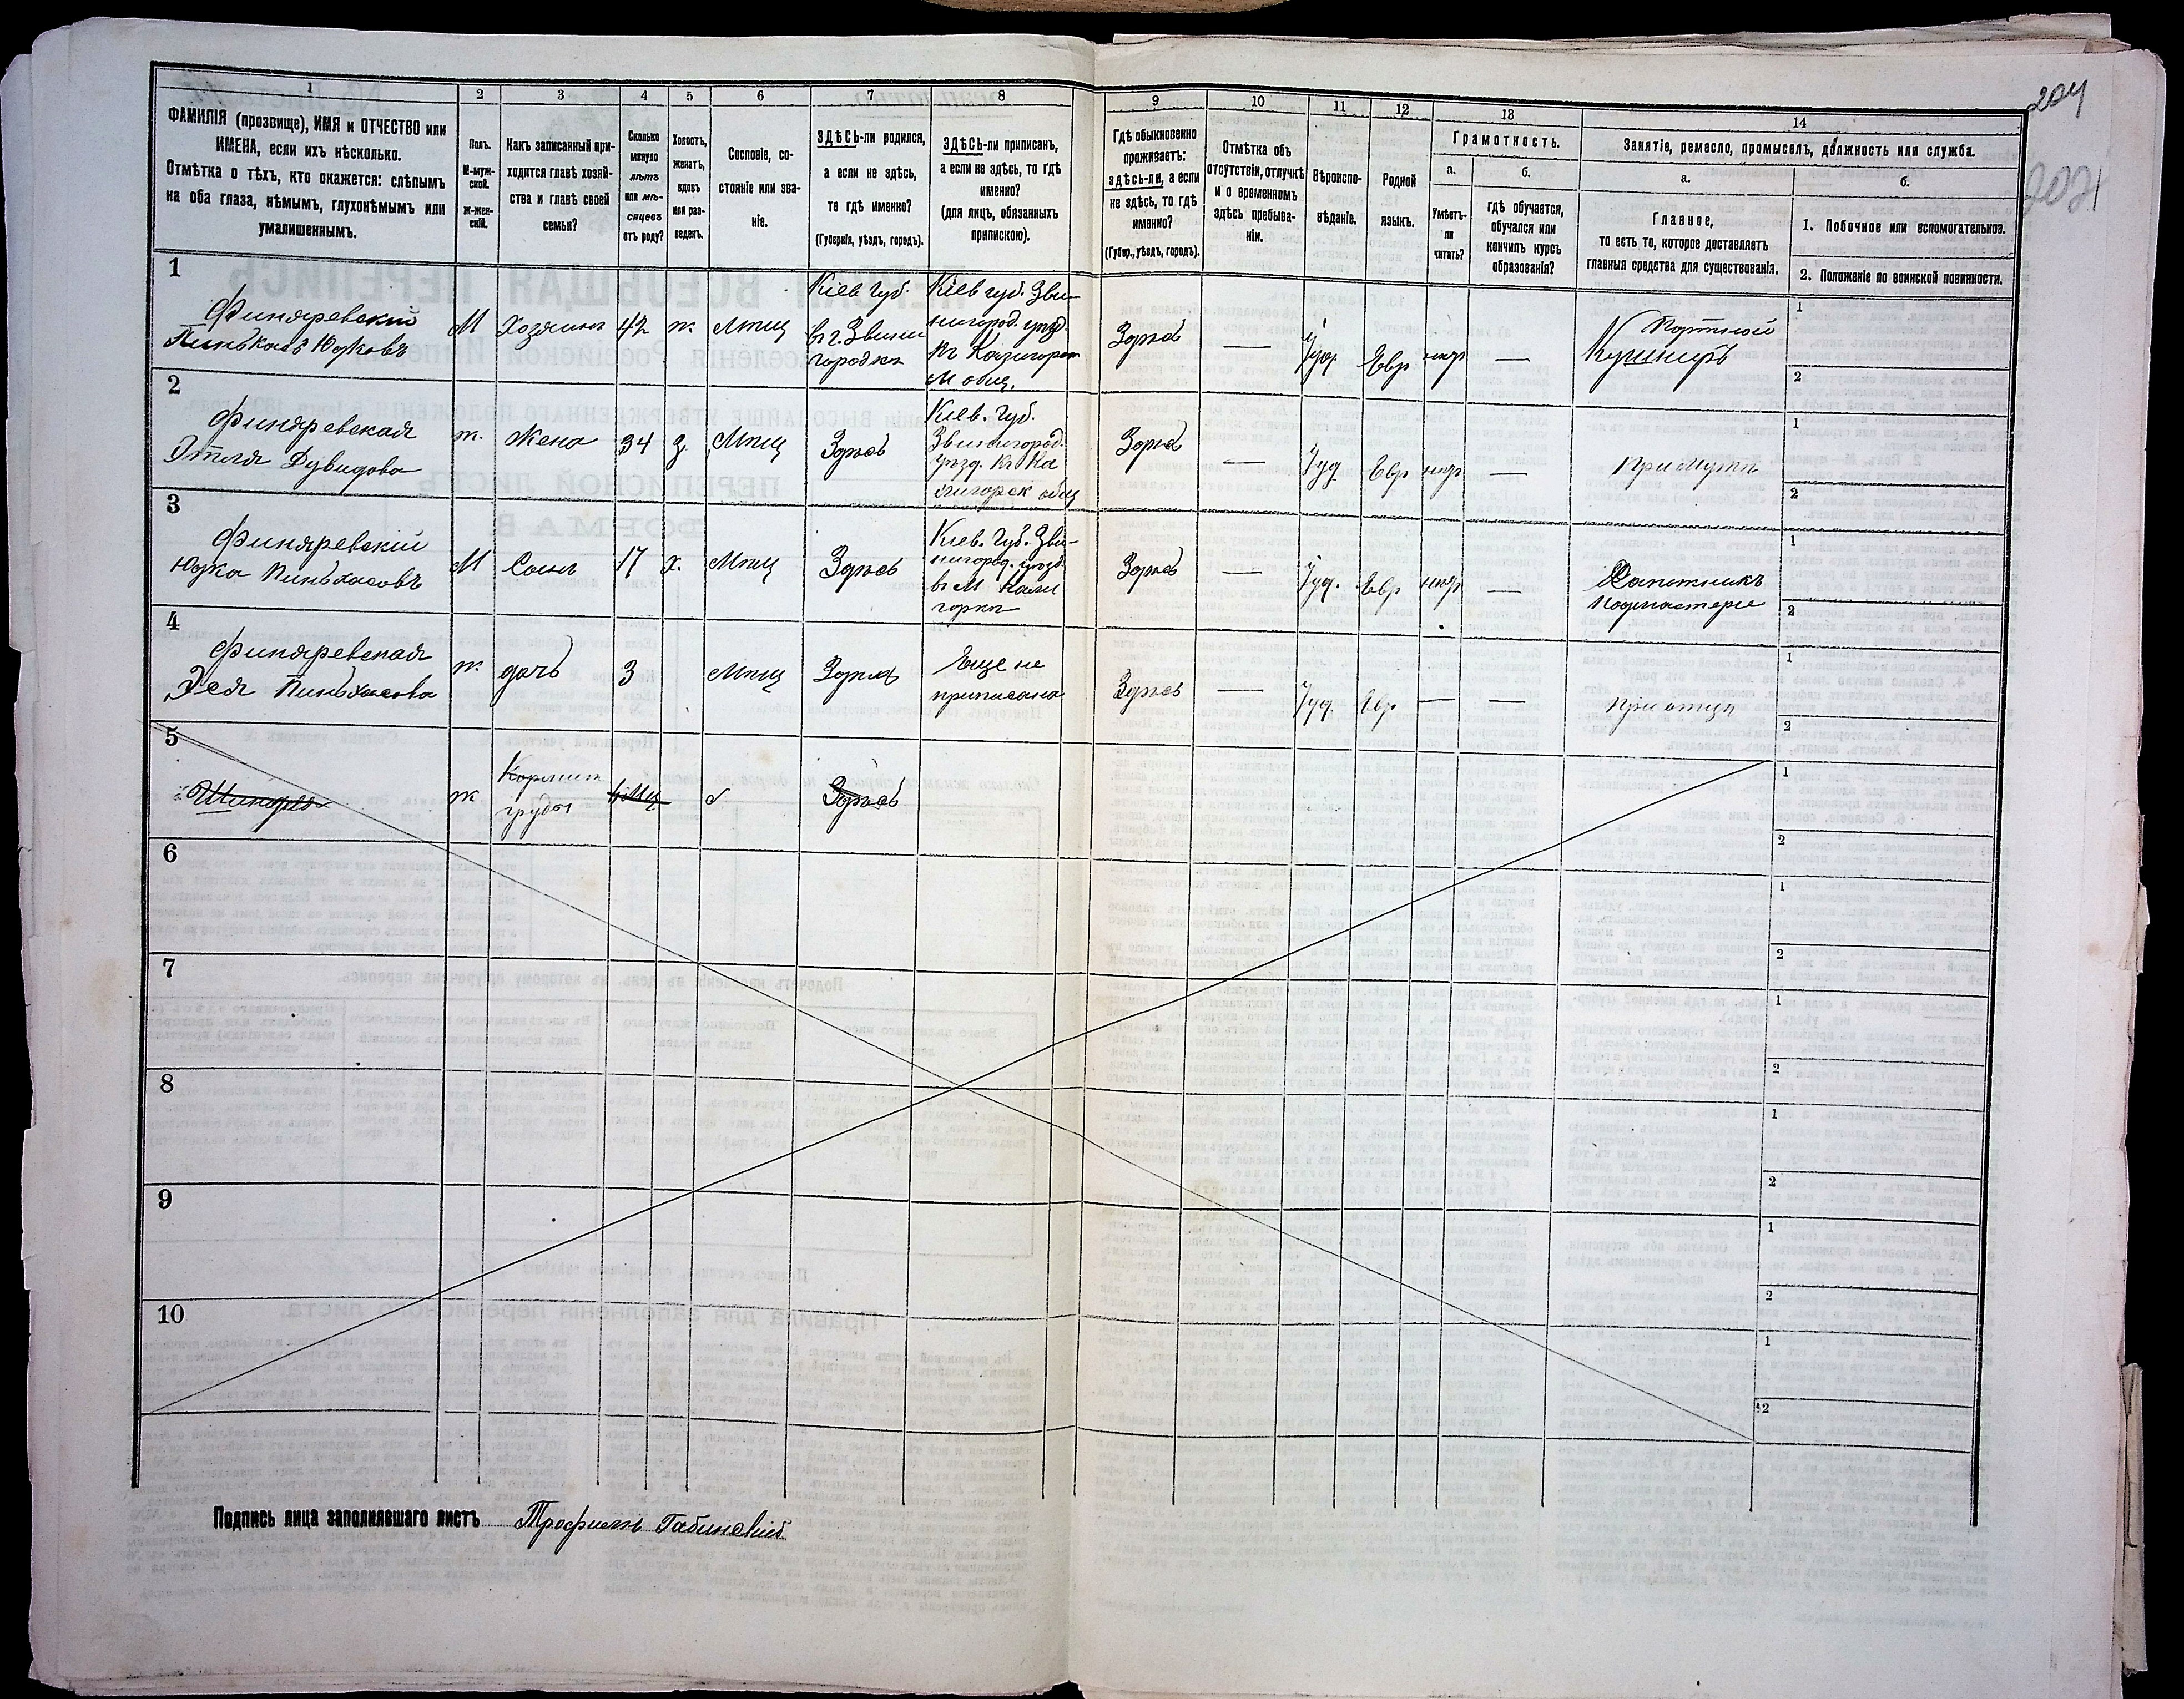 204
202
1
2
3
4
5
6
7
8
9
10
11
12
13
14
ФАМИЛІЯ (прозвище), ИМЯ и ОТЧЕСТВО или
ИМЕНА, если ихъ нѣсколько.
Отмѣтка о тѣхъ, кто окажется: слѣпымъ
на оба глаза, нѣмымъ, глухонѣмымъ или
умалишеннымъ.
Полъ.
М-муж-
ской.
Ж-жен-
скій.
Какъ записанный при-
ходится главѣ хозяй-
ства и главѣ своей
семьи?
Сколько
минуло
лѣтъ
или мѣ-
сяцевъ
отъ роду?
Холостъ,
женатъ,
вдовъ
или раз-
веденъ.
Сословіе, со-
стояніе или зва-
ніе.
ЗДѢСЬ-ли родился,
а если не здѣсь,
то гдѣ именно?
(Губернія, уѣздъ, городъ).
ЗДѢСЬ-ли приписанъ,
а если не здѣсь, то гдѣ
именно?
(для лицъ, обязанныхъ
припискою).
Гдѣ обыкновенно
проживаетъ:
здѣсь-ли, а если
не здѣсь, то гдѣ
именно?
(Губер., уѣздъ, городъ).
Отмѣтка объ
отсутствіи, отлучкѣ
и о временномъ
здѣсь пребыва-
ніи.
Вѣроиспо-
вѣданіе.
Родной
языкъ.
Грамотность.
а.
Умѣетъ-
ли
читать?
б.
гдѣ обучается,
обучался или
кончилъ курсъ
образованія?
Занятіе, ремесло, промыселъ, должность или служба.
а.
Главное,
то есть то, которое доставляетъ
главныя средства для существованія.
б.
1. Побочное или вспомогательное.
2. Положеніе по воинской повинности.
1
Финяревскій
Пинькасъ Юдковъ
М
Хозяинъ
42
ж
Мѣщ
Кіев Губ.
въ г. Звени
городкѣ
Кіев губ. Зви-
нигород. уѣзд.
М общ.
Здѣсь
—
Іуд.
Евр
нѣт
—
Портной
Кушниръ
1
2
2
Финяревская
Этля Дувидова
ж.
Жена
34
З.
Мѣщ
Здѣсь
Кіев. Губ.
Звинигород.
уѣзд. къ Ка
лигорск общ
Здѣсь
—
Іуд
Евр
нѣт
—
При мужѣ
1
2
3
Финяревскій
Юдка Пиньхасовъ
М
Сынъ
17
Х.
Мѣщ
Здѣсь
Кіев. Губ. Зви-
нигород. уѣзд.
въ М Кали
горкѣ
Здѣсь
—
Іуд.
Евр
нѣт
—
Сапожникъ
подмастерье
1
2
4
Финяревская
Эся Пиньхасова
ж.
дочь
3
Мѣщ
Здѣсь
Еще не
приписана
Здѣсь
—
Іуд.
Евр
—
—
При отцѣ
1
2
5
ж
Кормит
грудью
Здѣсь
1
2
6
1
2
7
1
2
8
1
2
9
1
2
10
1
2
Подпись лица заполнявшаго листъ Трофимъ Габинскій